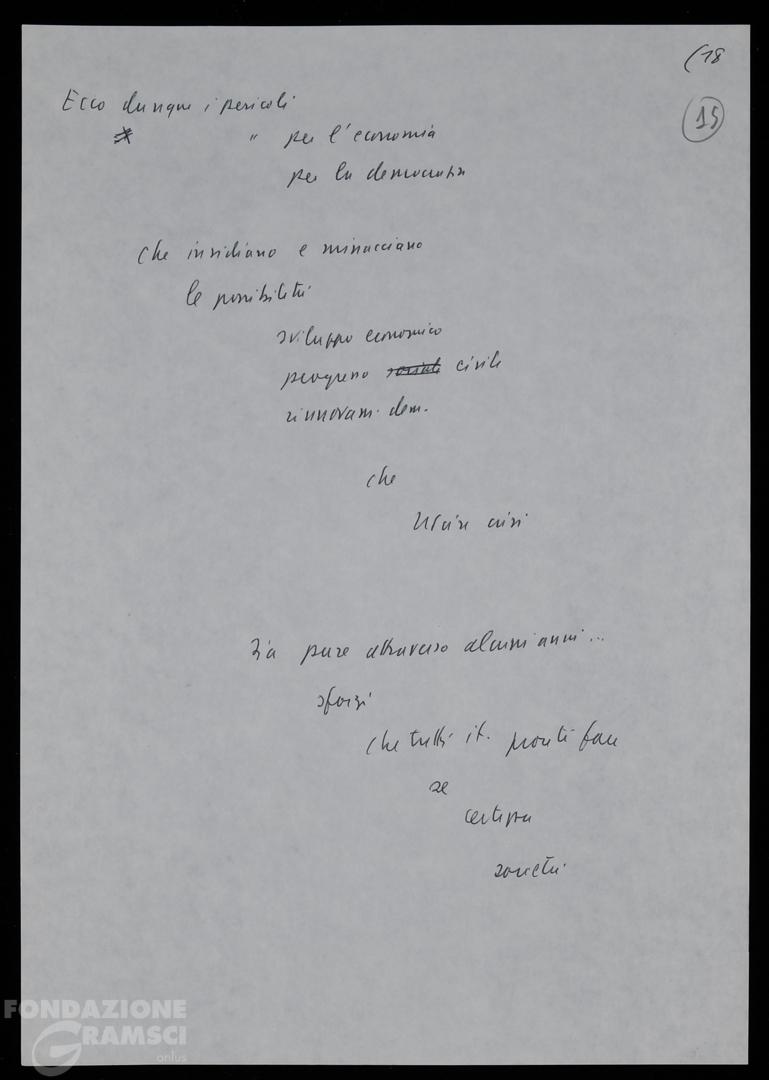 (18
15
Ecco dunque i pericoli
" per l'economia
per la democrazia
che insidiano e minacciano
le possibilità
sviluppo economico
progresso sociale civile
rinnovam. dem.
che
Uscire crisi
Sia pure attraverso alcuni anni...
sforzi
che tutti it. pronti fare
se
certezza
società
FONDAZIONE
GRAMSCI
onlus